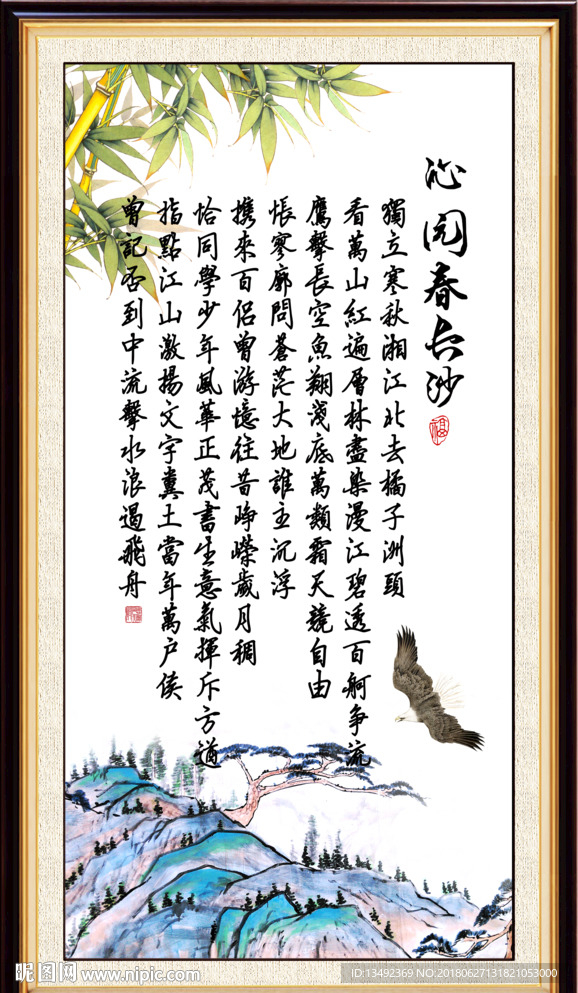 沁园春长沙
福
獨立寒秋湘江北去橘子洲頭
看萬山紅遍層林盡染漫江碧透百舸争流
鷹擊長空魚翔淺底萬類霜天競自由
悵寥廓問蒼茫大地誰主沉浮
攜來百侣曾游憶往昔崢嶸歲月稠
恰同學少年風華正茂書生意氣揮斥方遒
指點江山激揚文字糞土當年萬户侯
曾記否到中流擊水浪遏飛舟
昵图网 www.nipic.com
ID:13492369 NO:20180627131821053000